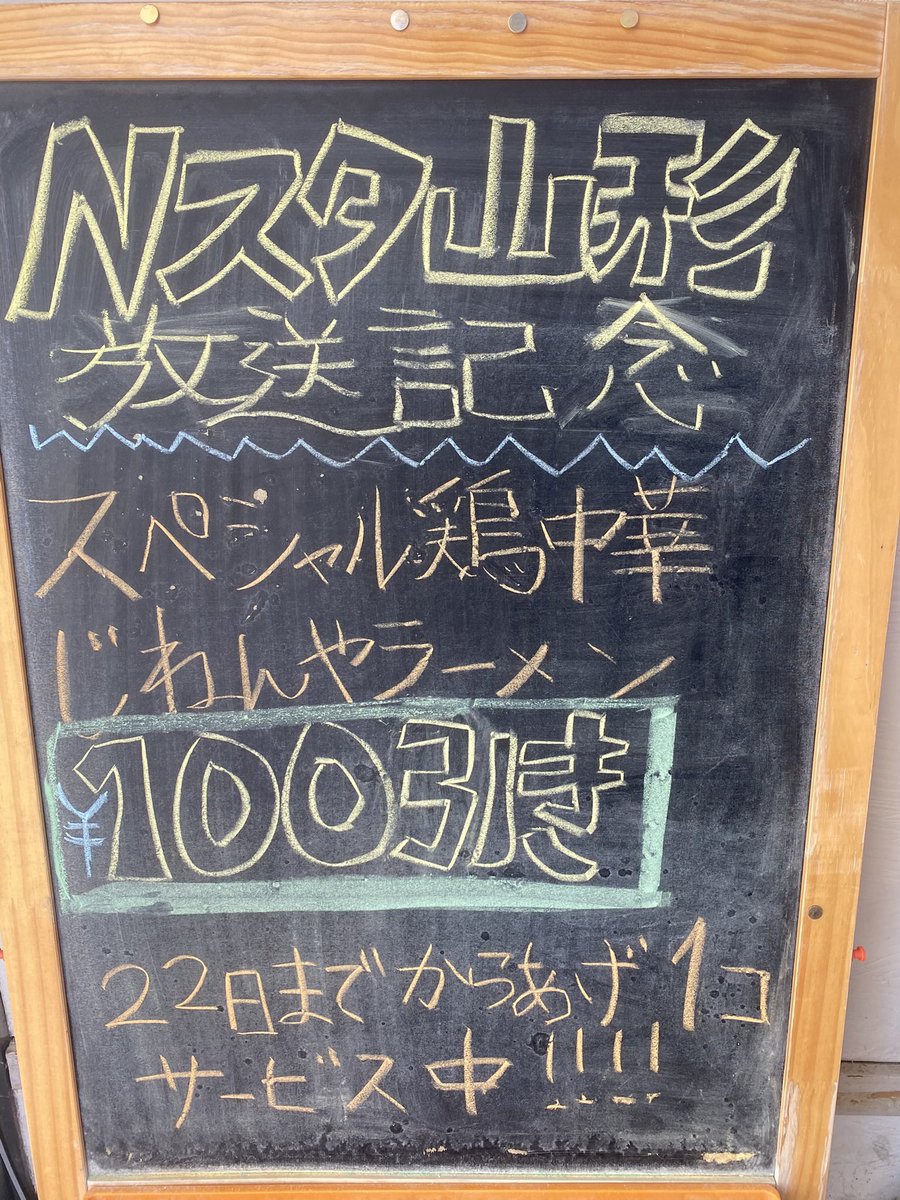 Nスタ山形
放送記念
スペシャル鶏中華
じねんやラーメン
¥100引き
22日まで からあげ 1コ
サービス中!!!!